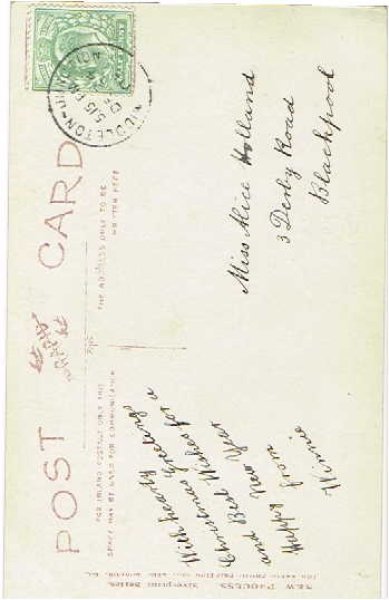 POST CARD
FOR INLAND POSTAGE ONLY THIS
SPACE MAY BE USED FOR COMMUNICATION
THE ADDRESS ONLY TO BE
WRITTEN HERE
MIDDLETON
5.15 PM
With hearty
Christmas Greetings
and Best Wishes for a
Happy New Year
from
Winnie
Miss Alice Holland
3 Derby Road
Blackpool
NEW PROCESS